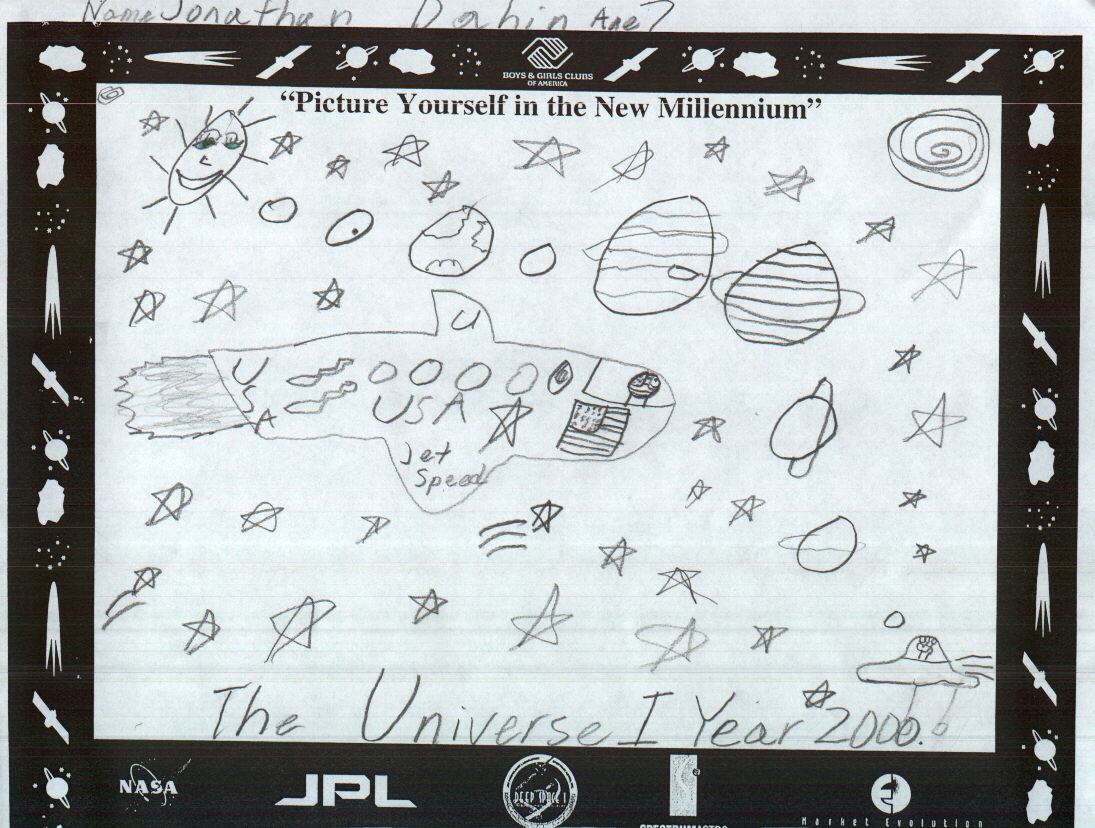 Name Jonathan Dahin Age 7
BOYS & GIRLS CLUBS
OF AMERICA
“Picture Yourself in the New Millennium”
U
U
S
A
USA
Jet
Speed
The Universe I Year 2000.
NASA
JPL
DEEP SPACE 1
SPECTRUMASTRO
Market Evolution